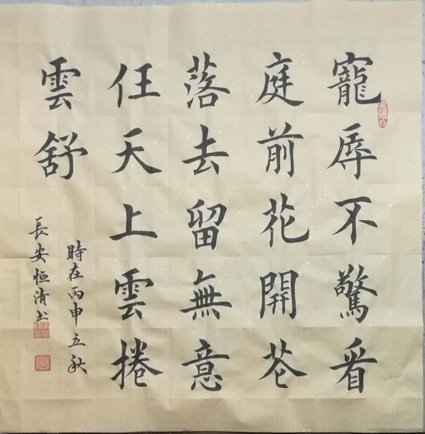 寵辱不驚看
庭前花開花
落去留無意
任天上雲捲
雲舒
時在丙申立秋
長安恒清书